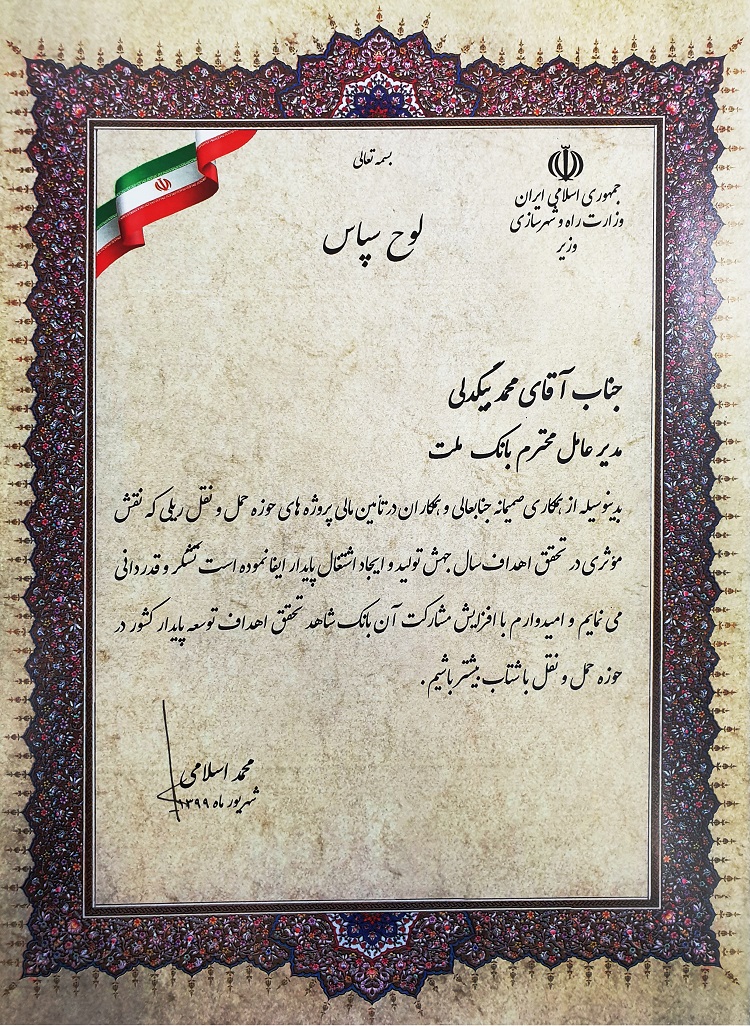 بسمه تعالی
جمهوری اسلامی ایران
وزارت راه و شهرسازی
وزیر
لوح سپاس
جناب آقای محمد بیگدلی
مدیر عامل محترم بانک ملت
بدینوسیله از همکاری صمیمانه جنابعالی و همکاران در تأمین مالی پروژه های حوزه حمل و نقل ریلی که نقش
مؤثری در تحقق اهداف سال جهش تولید و ایجاد اشتغال پایدار ایفا نموده است تشکر و قدردانی
می نمایم و امیدوارم با افزایش مشارکت آن بانک شاهد تحقق اهداف توسعه پایدار کشور در
حوزه حمل و نقل با شتاب بیشتر باشیم.
محمد اسلامی
شهریور ماه ۱۳۹۹